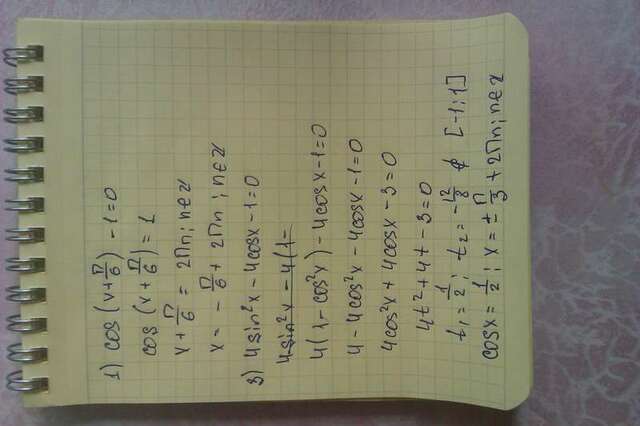 1) cos(x+П/6) -1=0
cos(x+П/6)=1
x+П/6 = 2Пn; n∈Z
x = -П/6 + 2Пn; n∈Z
3) 4sin²x-4cosx-1=0
4sin²x-4(1-
4(1-cos²x)-4cosx-1=0
4-4cos²x-4cosx-1=0
4cos²x+4cosx-3=0
4t²+4t-3=0
t₁=1/2; t₂=-12/8 ∉ [-1;1]
cosx=1/2; x=±П/3+2Пn; n∈Z